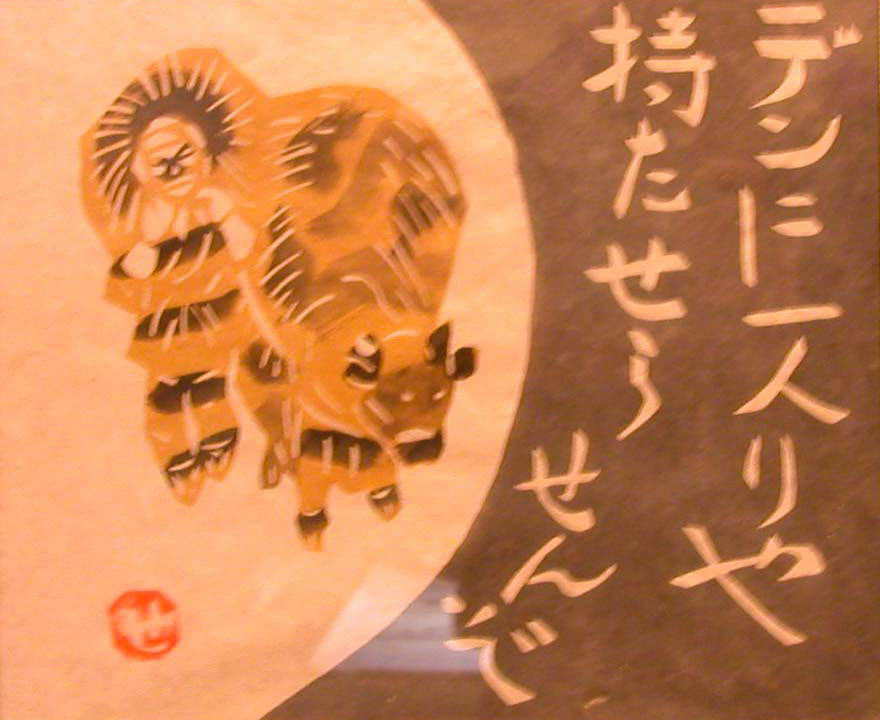 デンに一人りや
持たせら
せんぞ